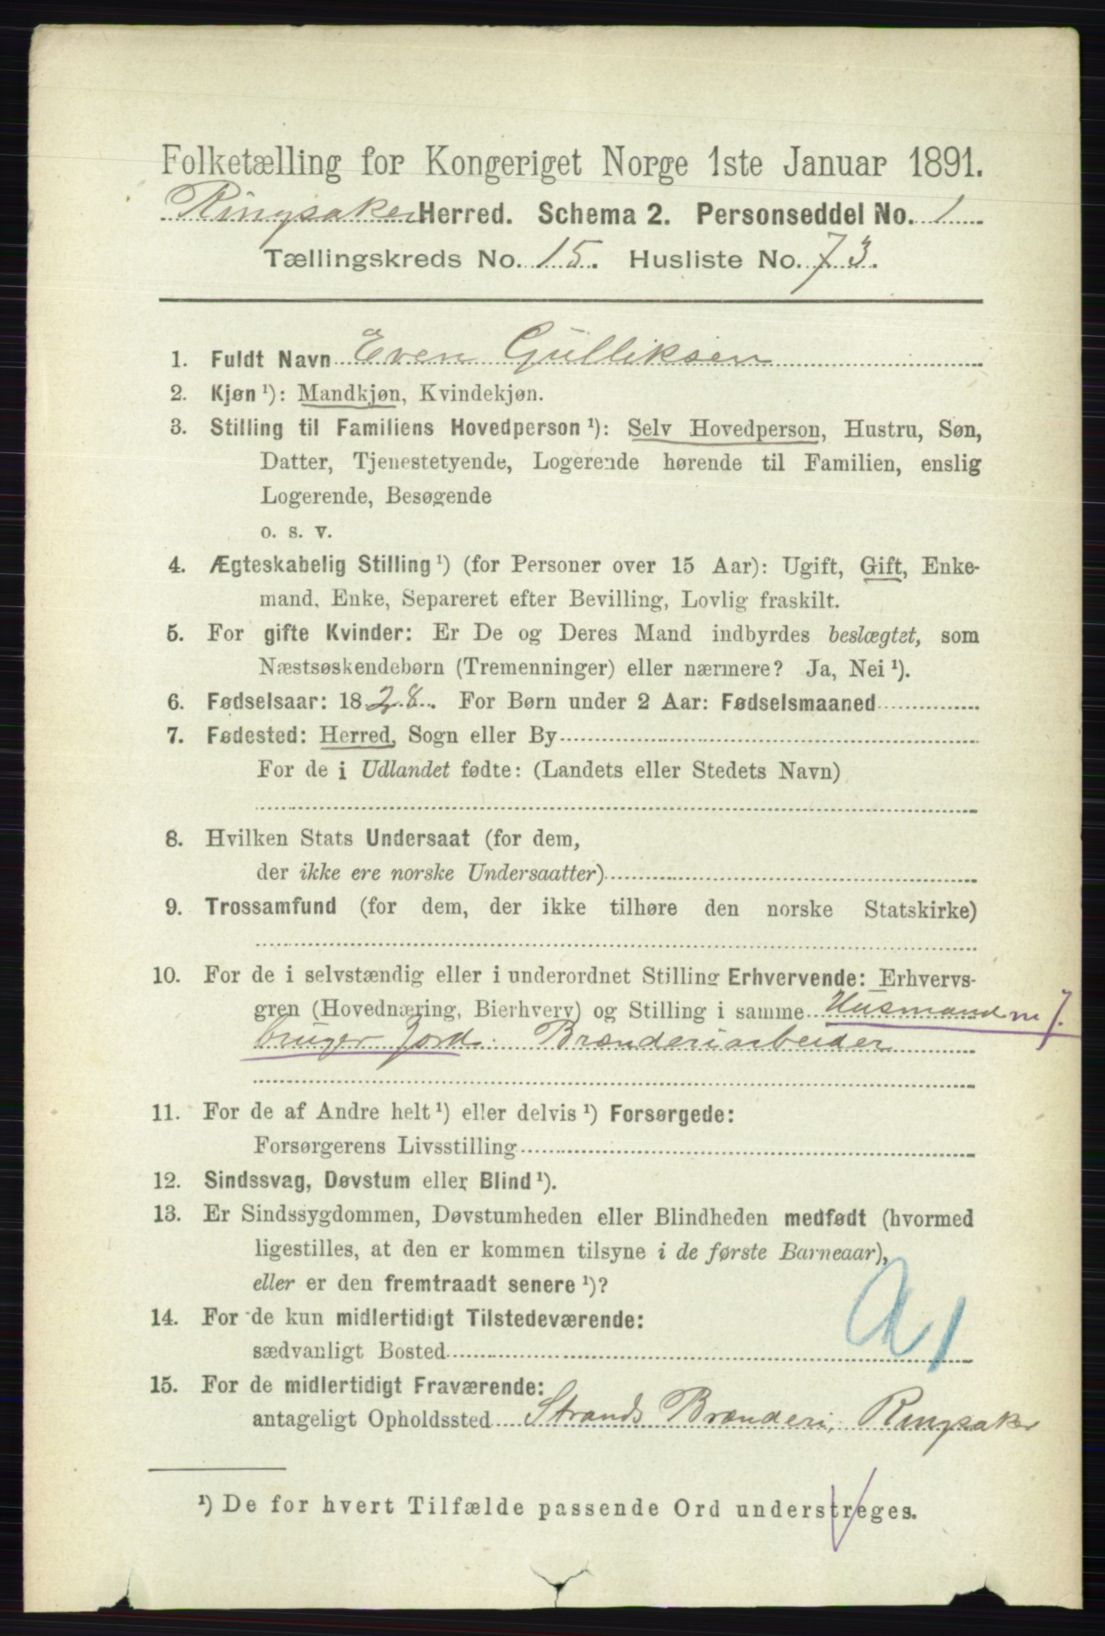 Folketælling for Kongeriget Norge 1ste Januar 1891.
Ringsaker Herred. Schema 2. Personseddel No. 1
Tællingskreds No. 15. Husliste No. 73.
1. Fuldt Navn Even Gulliksen
2. Kjøn ¹): Mandkjøn, Kvindekjøn.
3. Stilling til Familiens Hovedperson ¹): Selv Hovedperson, Hustru, Søn,
Datter, Tjenestetyende, Logerende hørende til Familien, enslig
Logerende, Besøgende
o. s. v.
4. Ægteskabelig Stilling ¹) (for Personer over 15 Aar): Ugift, Gift, Enke-
mand, Enke, Separeret efter Bevilling, Lovlig fraskilt.
5. For gifte Kvinder: Er De og Deres Mand indbyrdes beslægtet, som
Næstsøskendebørn (Tremenninger) eller nærmere? Ja, Nei ¹).
6. Fødselsaar: 1828. For Børn under 2 Aar: Fødselsmaaned
7. Fødested: Herred, Sogn eller By
For de i Udlandet fødte: (Landets eller Stedets Navn)
8. Hvilken Stats Undersaat (for dem,
der ikke ere norske Undersaatter)
9. Trossamfund (for dem, der ikke tilhøre den norske Statskirke)
10. For de i selvstændig eller i underordnet Stilling Erhvervende: Erhvervs-
gren (Hovednæring, Bierhverv) og Stilling i samme Husmand m J.
bruger Jord. Brænderiarbeider
11. For de af Andre helt ¹) eller delvis ¹) Forsørgede:
Forsørgerens Livsstilling
12. Sindssvag, Døvstum eller Blind ¹).
13. Er Sindssygdommen, Døvstumheden eller Blindheden medfødt (hvormed
ligestilles, at den er kommen tilsyne i de første Barneaar),
eller er den fremtraadt senere ¹)?
14. For de kun midlertidigt Tilstedeværende:
sædvanligt Bosted
15. For de midlertidigt Fraværende:
antageligt Opholdssted Strands Brænderi, Ringsaker
¹) De for hvert Tilfælde passende Ord understreges.